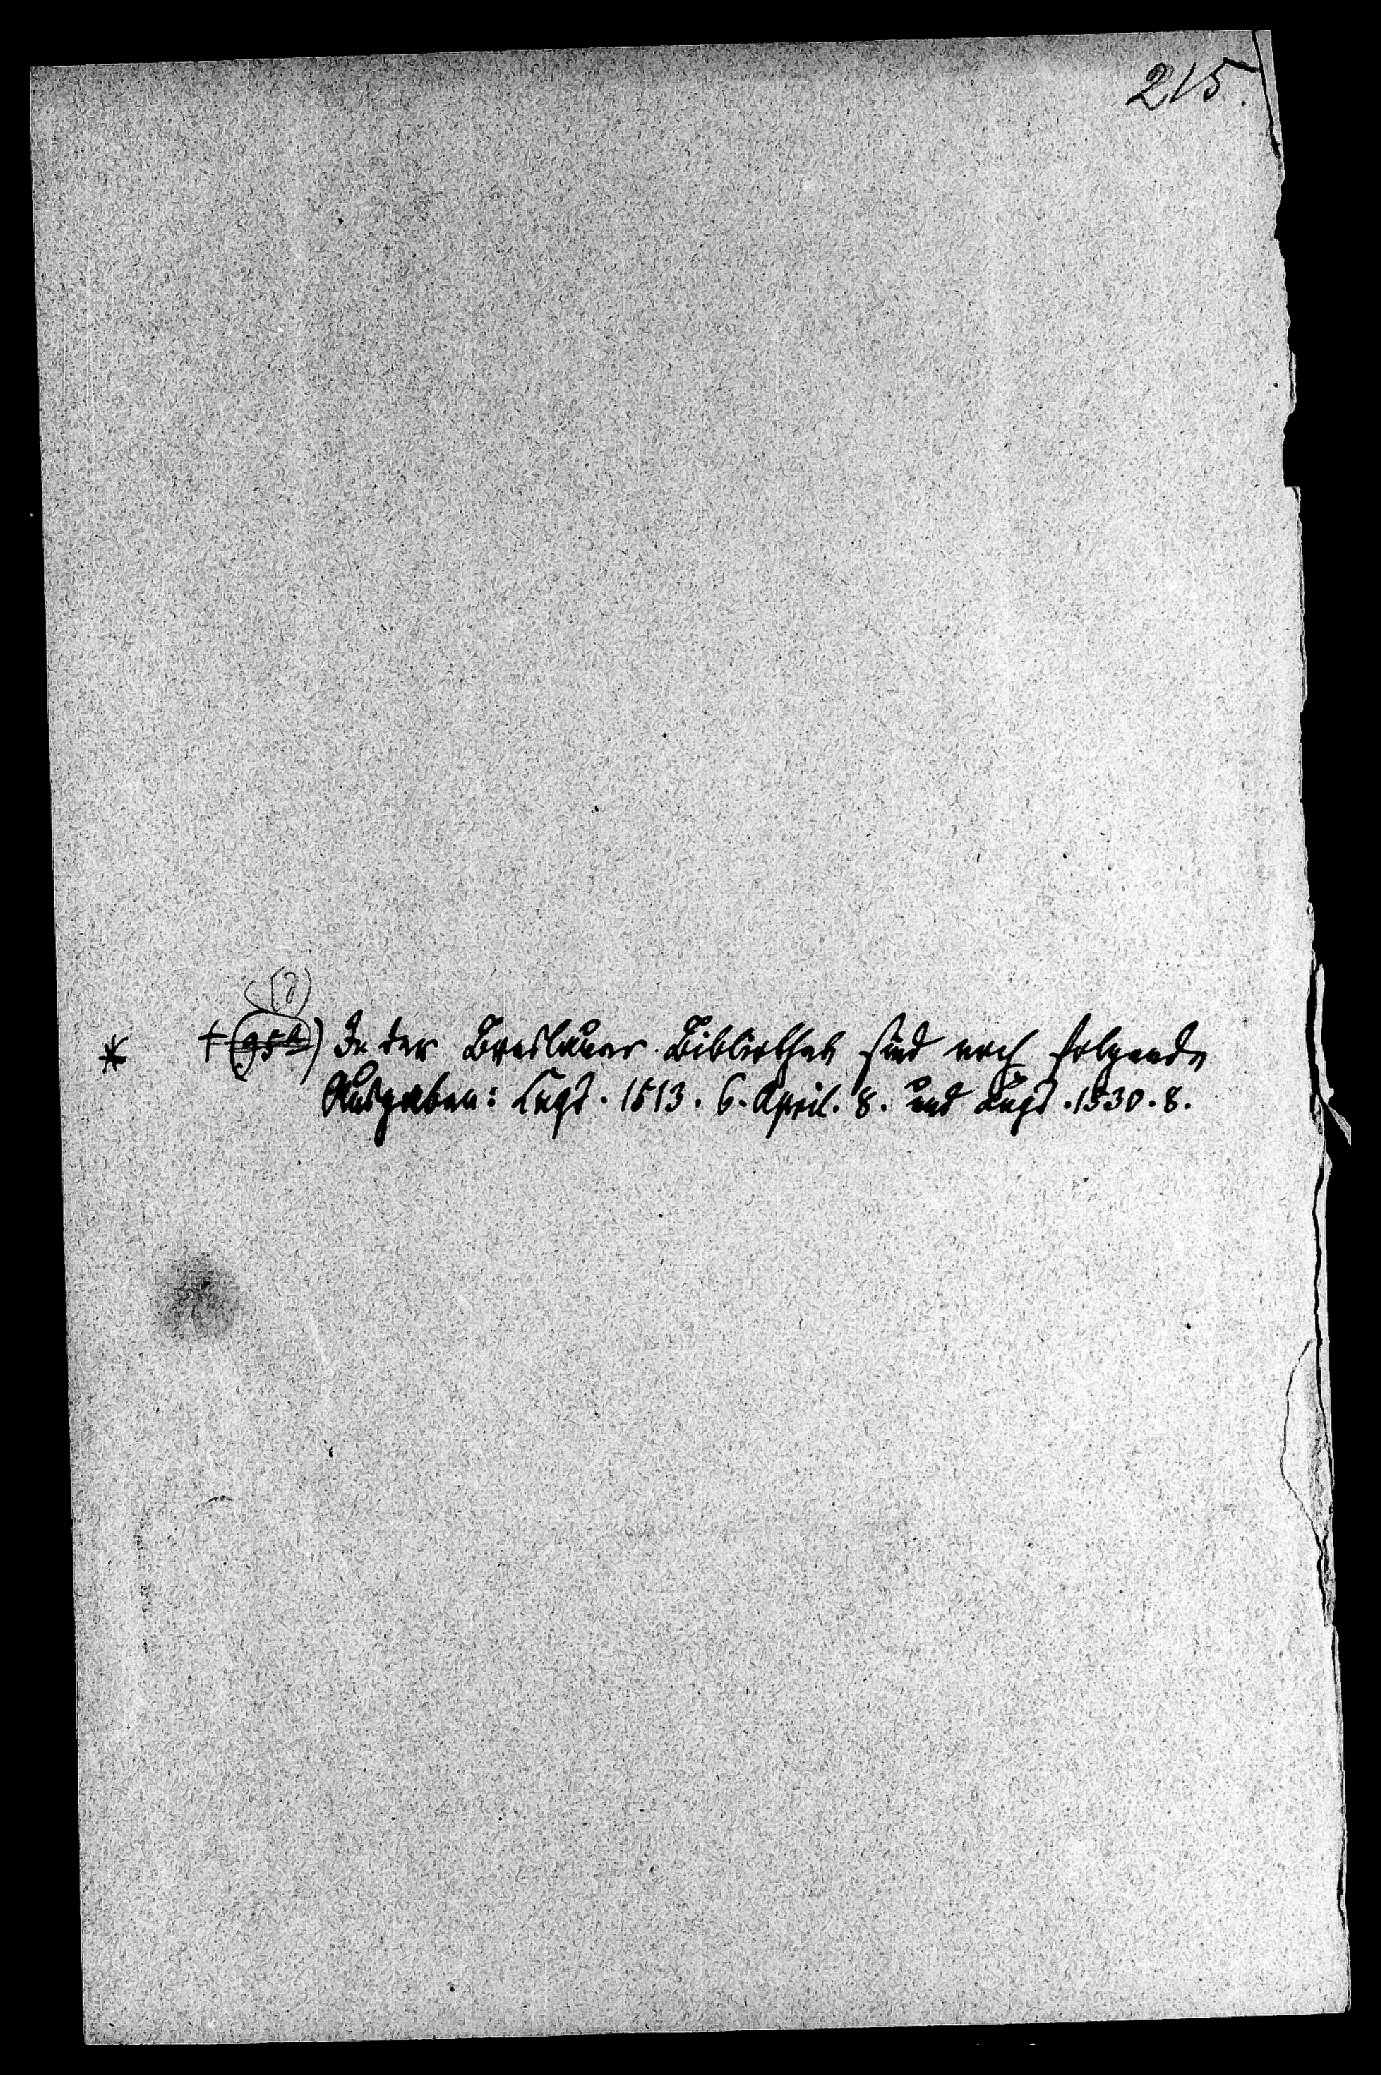 215.
* † (95b) In der Breslauer Bibliothek sind noch folgende
Ausgaben: Lugd. 1513. 6. April. 8. und Lugd. 1530. 8.